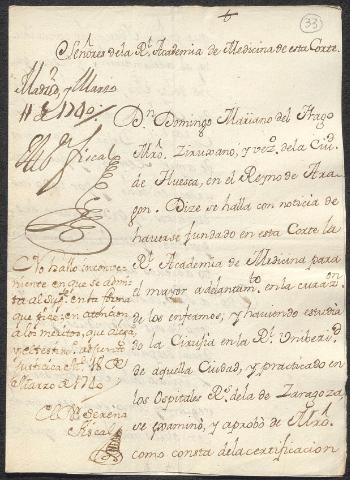 33
Señores de la Rl. Academia de Medicina de esta Corte.
Madrid, y Marzo
11 de 1740.
Al Sr. Fiscal
Dn. Domingo Mariano del Trago
Mro. Zirujano, y vezo. de la Ciud.
de Huesca, en el Reyno de Ara-
gon. Dize se halla con noticia de
haverse fundado en esta Corte la
Rl. Academia de Medicina para
el mayor adelantamto. en la curazon.
de los enfermos, y haviendo estudiado
de la Cirugia en la Rl. Unibersd.
de aquella Ciudad, y practicado en
los Ospitales Rs. de la de Zaragoza,
se examinò, y aprobò de Mro.
como consta de la certificacion
No hallo inconve-
niente en que se admi-
ta al supte. en la forma
que pide, en atencion
a los meritos, que alega,
y el testimo. adjunto
justifica Md. 18 de
Marzo de 1740
El Dr. Serena
Fiscal